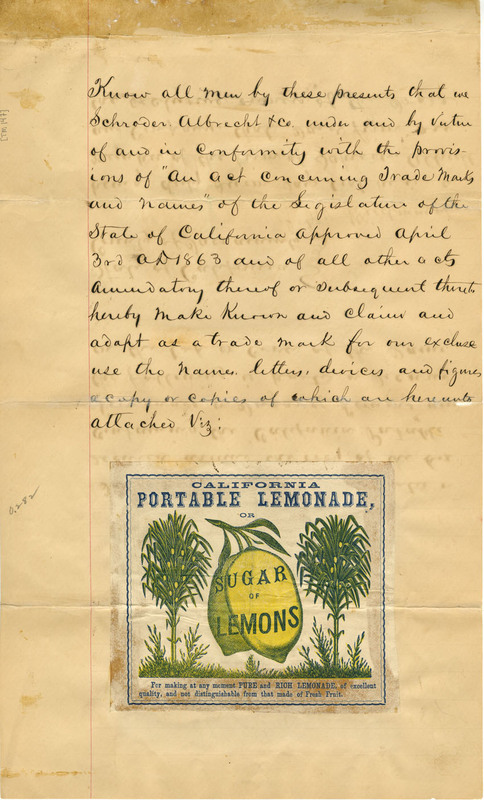 Know all men by these presents that we
Schroder Albrecht & Co. under and by virtue
of and in conformity with the provis-
ions of "An act concerning Trade Marks
and Names" of the Legislature of the
State of California approved April
3rd AD 1863 and of all other acts
Amendatory thereof or Subsequent thereto
hereby make Known and claim and
adapt as a trade mark for our excluse
use the names, letters, devices and figures,
a copy or copies of which are hereunto
attached Viz:
CALIFORNIA
PORTABLE LEMONADE,
OR
SUGAR
OF
LEMONS
For making at any moment PURE and RICH LEMONADE, of excellent
quality, and not distinguishable from that made of Fresh Fruit.
[TM 197]